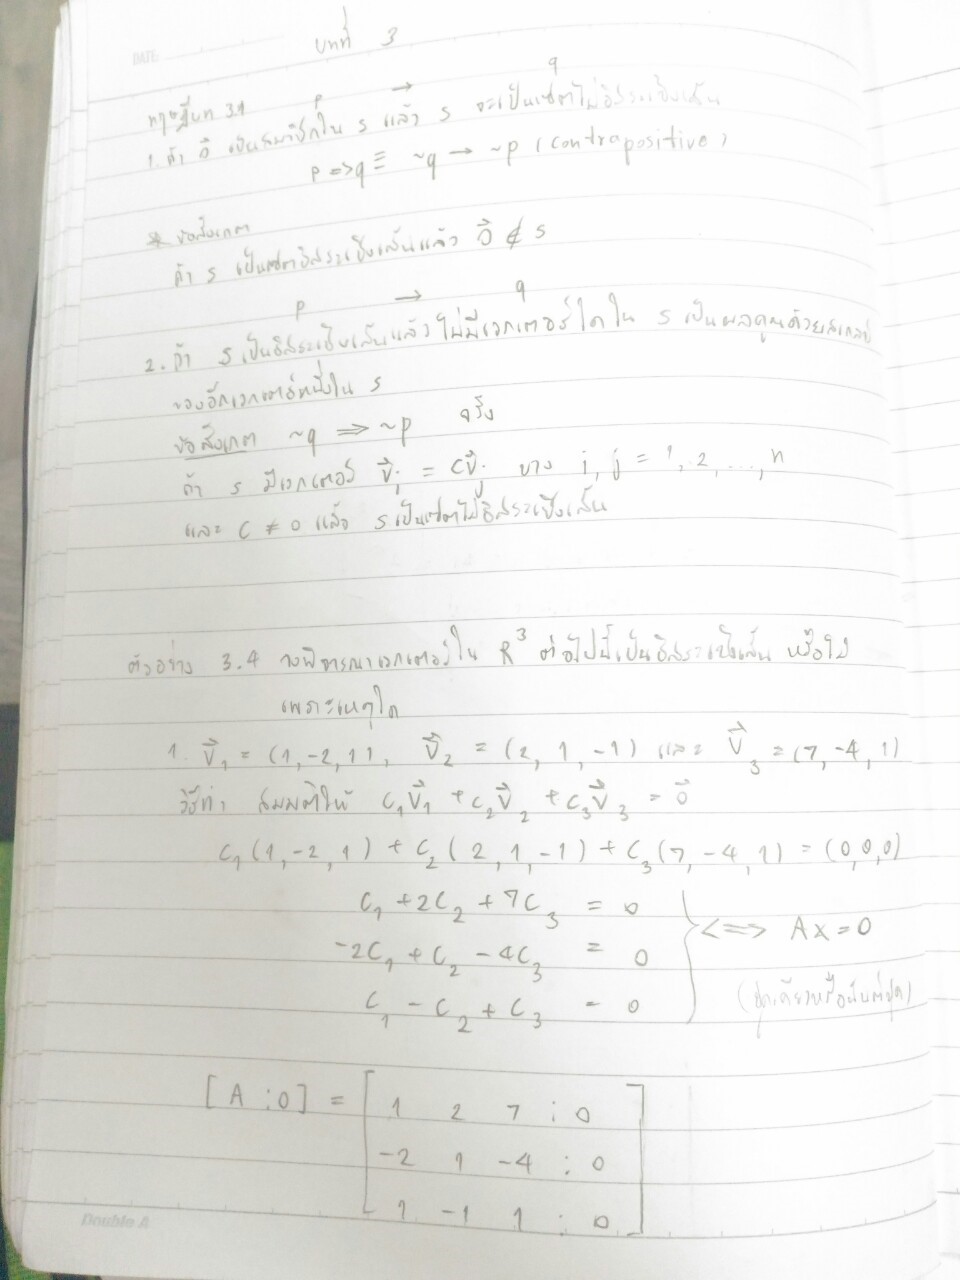 DATE:
บทที่ 3
ทฤษฎีบท 3.1
p → q
1. ถ้า 0⃗ เป็นสมาชิกใน S แล้ว S จะเป็นเซตไม่อิสระเชิงเส้น
p => q ≡ ~q → ~p (contrapositive)
* ข้อสังเกต
ถ้า S เป็นเซตอิสระเชิงเส้นแล้ว 0⃗ ∉ S
p → q
2. ถ้า S เป็นอิสระเชิงเส้นแล้วไม่มีเวกเตอร์ใดใน S เป็นผลคูณด้วยสเกลาร์
ของอีกเวกเตอร์หนึ่งใน S
ข้อสังเกต ~q => ~p จริง
ถ้า S มีเวกเตอร์ v⃗ᵢ = cv⃗ⱼ บาง i, j = 1, 2, ..., n
และ c ≠ 0 แล้ว S เป็นเซตไม่อิสระเชิงเส้น
ตัวอย่าง 3.4 จงพิจารณาเวกเตอร์ใน R³ ต่อไปนี้เป็นอิสระเชิงเส้น หรือไม่
เพราะเหตุใด
1. v⃗₁ = (1, -2, 1), v⃗₂ = (2, 1, -1) และ v⃗₃ = (7, -4, 1)
วิธีทำ สมมติให้ c₁v⃗₁ + c₂v⃗₂ + c₃v⃗₃ = 0⃗
c₁(1, -2, 1) + c₂(2, 1, -1) + c₃(7, -4, 1) = (0, 0, 0)
c₁ + 2c₂ + 7c₃ = 0
-2c₁ + c₂ - 4c₃ = 0
<=> Ax = 0
c₁ - c₂ + c₃ = 0
(ชุดเดียวหรืออนันต์ชุด)
[A : 0] = [ 1 2 7 : 0
-2 1 -4 : 0
1 -1 1 : 0 ]
Double A